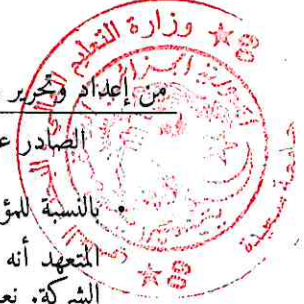 وزارة التعليم
من إعداد وتحرير
الصادر ع
• بالنسبة للمؤ
المتعهد أنه
الشركة، نع